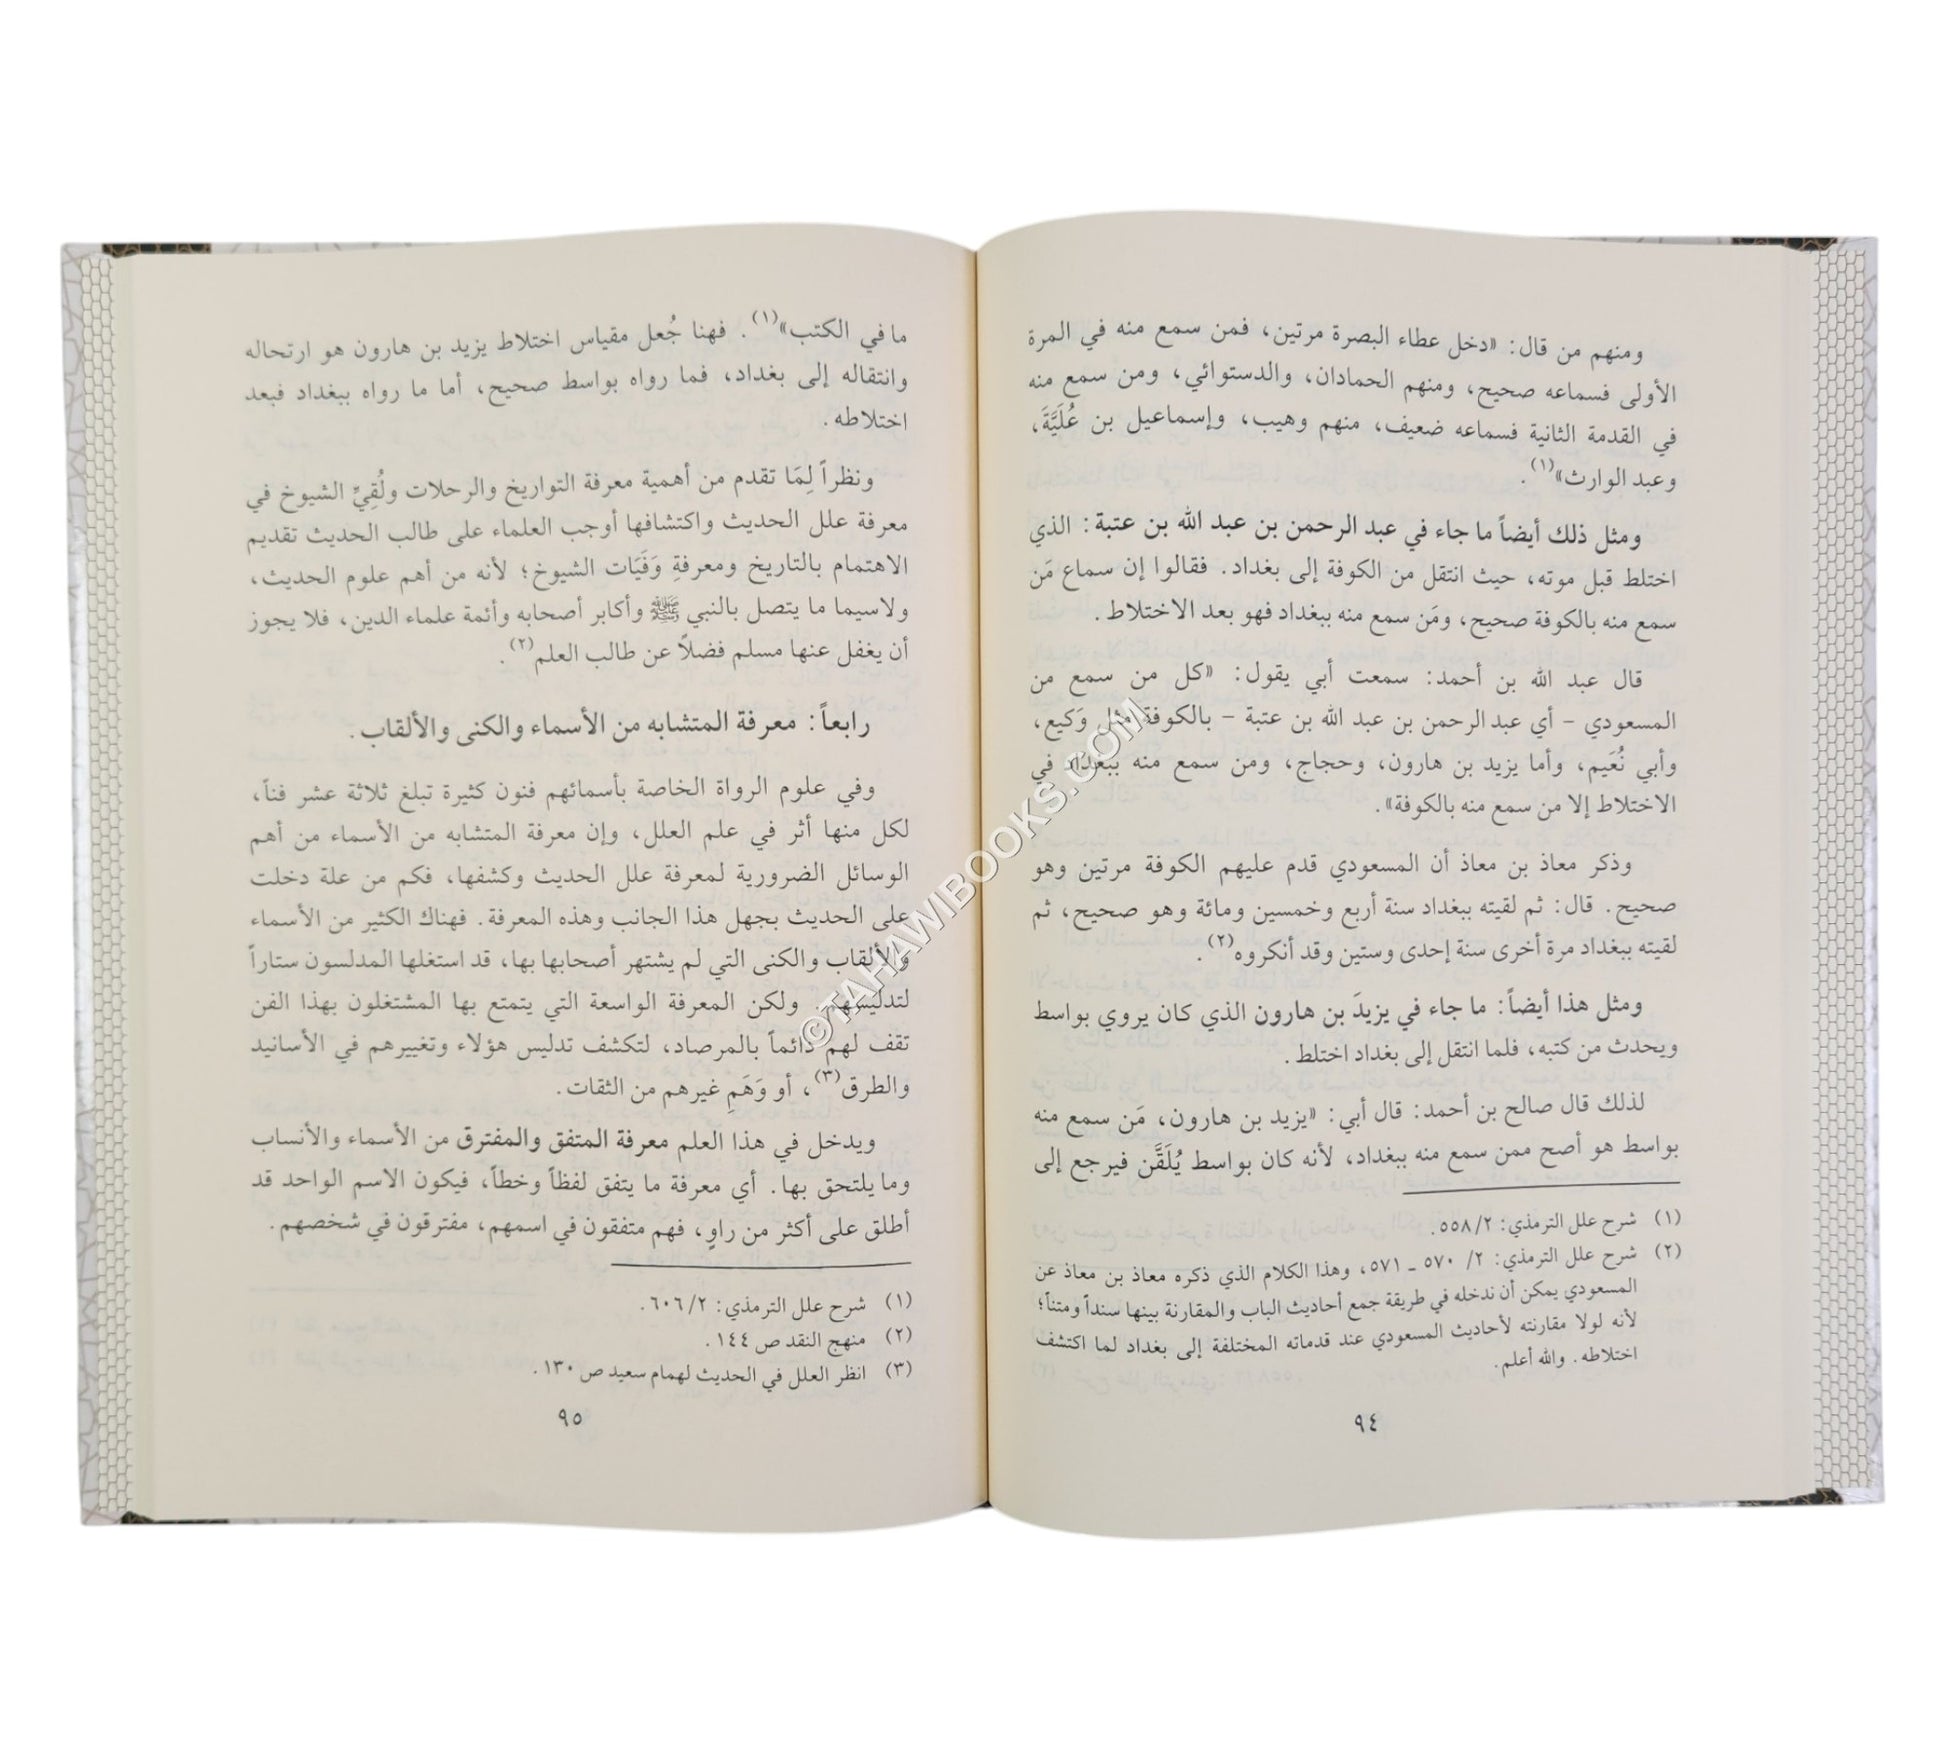 ومنهم من قال: «دخل عطاء البصرة مرتين، فمن سمع منه في المرة
الأولى فسماعه صحيح، ومنهم الحمادان، والدستوائي، ومن سمع منه
في القدمة الثانية فسماعه ضعيف، منهم وهيب، وإسماعيل بن عُلَيَّةَ،
وعبد الوارث»(١).
ومثل ذلك أيضاً ما جاء في عبد الرحمن بن عبد الله بن عتبة: الذي
اختلط قبل موته، حيث انتقل من الكوفة إلى بغداد. فقالوا إن سماع مَن
سمع منه بالكوفة صحيح، ومَن سمع منه ببغداد فهو بعد الاختلاط.
قال عبد الله بن أحمد: سمعت أبي يقول: «كل من سمع من
المسعودي - أي عبد الرحمن بن عبد الله بن عتبة - بالكوفة مثل وَكيع،
وأبي نُعَيم، وأما يزيد بن هارون، وحجاج، ومن سمع منه ببغداد في
الاختلاط إلا من سمع منه بالكوفة».
وذكر معاذ بن معاذ أن المسعودي قدم عليهم الكوفة مرتين وهو
صحيح. قال: ثم لقيته ببغداد سنة أربع وخمسين ومائة وهو صحيح، ثم
لقيته ببغداد مرة أخرى سنة إحدى وستين وقد أنكروه(٢).
ومثل هذا أيضاً: ما جاء في يزيدَ بن هارون الذي كان يروي بواسط
ويحدث من كتبه، فلما انتقل إلى بغداد اختلط.
لذلك قال صالح بن أحمد: قال أبي: «يزيد بن هارون، مَن سمع منه
بواسط هو أصح ممن سمع منه ببغداد، لأنه كان بواسط يُلَقَّن فيرجع إلى
(١) شرح علل الترمذي: ٢/٥٥٨.
(٢) شرح علل الترمذي: ٢/ ٥٧٠ ـ ٥٧١، وهذا الكلام الذي ذكره معاذ بن معاذ عن
المسعودي يمكن أن ندخله في طريقة جمع أحاديث الباب والمقارنة بينها سنداً ومتناً؛
لأنه لولا مقارنته لأحاديث المسعودي عند قدماته المختلفة إلى بغداد لما اكتشف
اختلاطه. والله أعلم.
٩٤
ما في الكتب»(١). فهنا جُعل مقياس اختلاط يزيد بن هارون هو ارتحاله
وانتقاله إلى بغداد، فما رواه بواسط صحيح، أما ما رواه ببغداد فبعد
اختلاطه.
ونظراً لِمَا تقدم من أهمية معرفة التواريخ والرحلات ولُقِيِّ الشيوخ في
معرفة علل الحديث واكتشافها أوجب العلماء على طالب الحديث تقديم
الاهتمام بالتاريخ ومعرفةِ وَفَيَات الشيوخ؛ لأنه من أهم علوم الحديث،
ولاسيما ما يتصل بالنبي ﷺ وأكابر أصحابه وأئمة علماء الدين، فلا يجوز
أن يغفل عنها مسلم فضلاً عن طالب العلم(٢).
رابعاً: معرفة المتشابه من الأسماء والكنى والألقاب.
وفي علوم الرواة الخاصة بأسمائهم فنون كثيرة تبلغ ثلاثة عشر فناً،
لكل منها أثر في علم العلل، وإن معرفة المتشابه من الأسماء من أهم
الوسائل الضرورية لمعرفة علل الحديث وكشفها، فكم من علة دخلت
على الحديث بجهل هذا الجانب وهذه المعرفة. فهناك الكثير من الأسماء
والألقاب والكنى التي لم يشتهر أصحابها بها، قد استغلها المدلسون ستاراً
لتدليسهم. ولكن المعرفة الواسعة التي يتمتع بها المشتغلون بهذا الفن
تقف لهم دائماً بالمرصاد، لتكشف تدليس هؤلاء وتغييرهم في الأسانيد
والطرق(٣)، أو وَهَمِ غيرهم من الثقات.
ويدخل في هذا العلم معرفة المتفق والمفترق من الأسماء والأنساب
وما يلتحق بها. أي معرفة ما يتفق لفظاً وخطاً، فيكون الاسم الواحد قد
أطلق على أكثر من راوٍ، فهم متفقون في اسمهم، مفترقون في شخصهم.
(١) شرح علل الترمذي: ٢/٦٠٦.
(٢) منهج النقد ص ١٤٤.
(٣) انظر العلل في الحديث لهمام سعيد ص ١٣٠.
٩٥
©TAHAWIBOOKS.COM